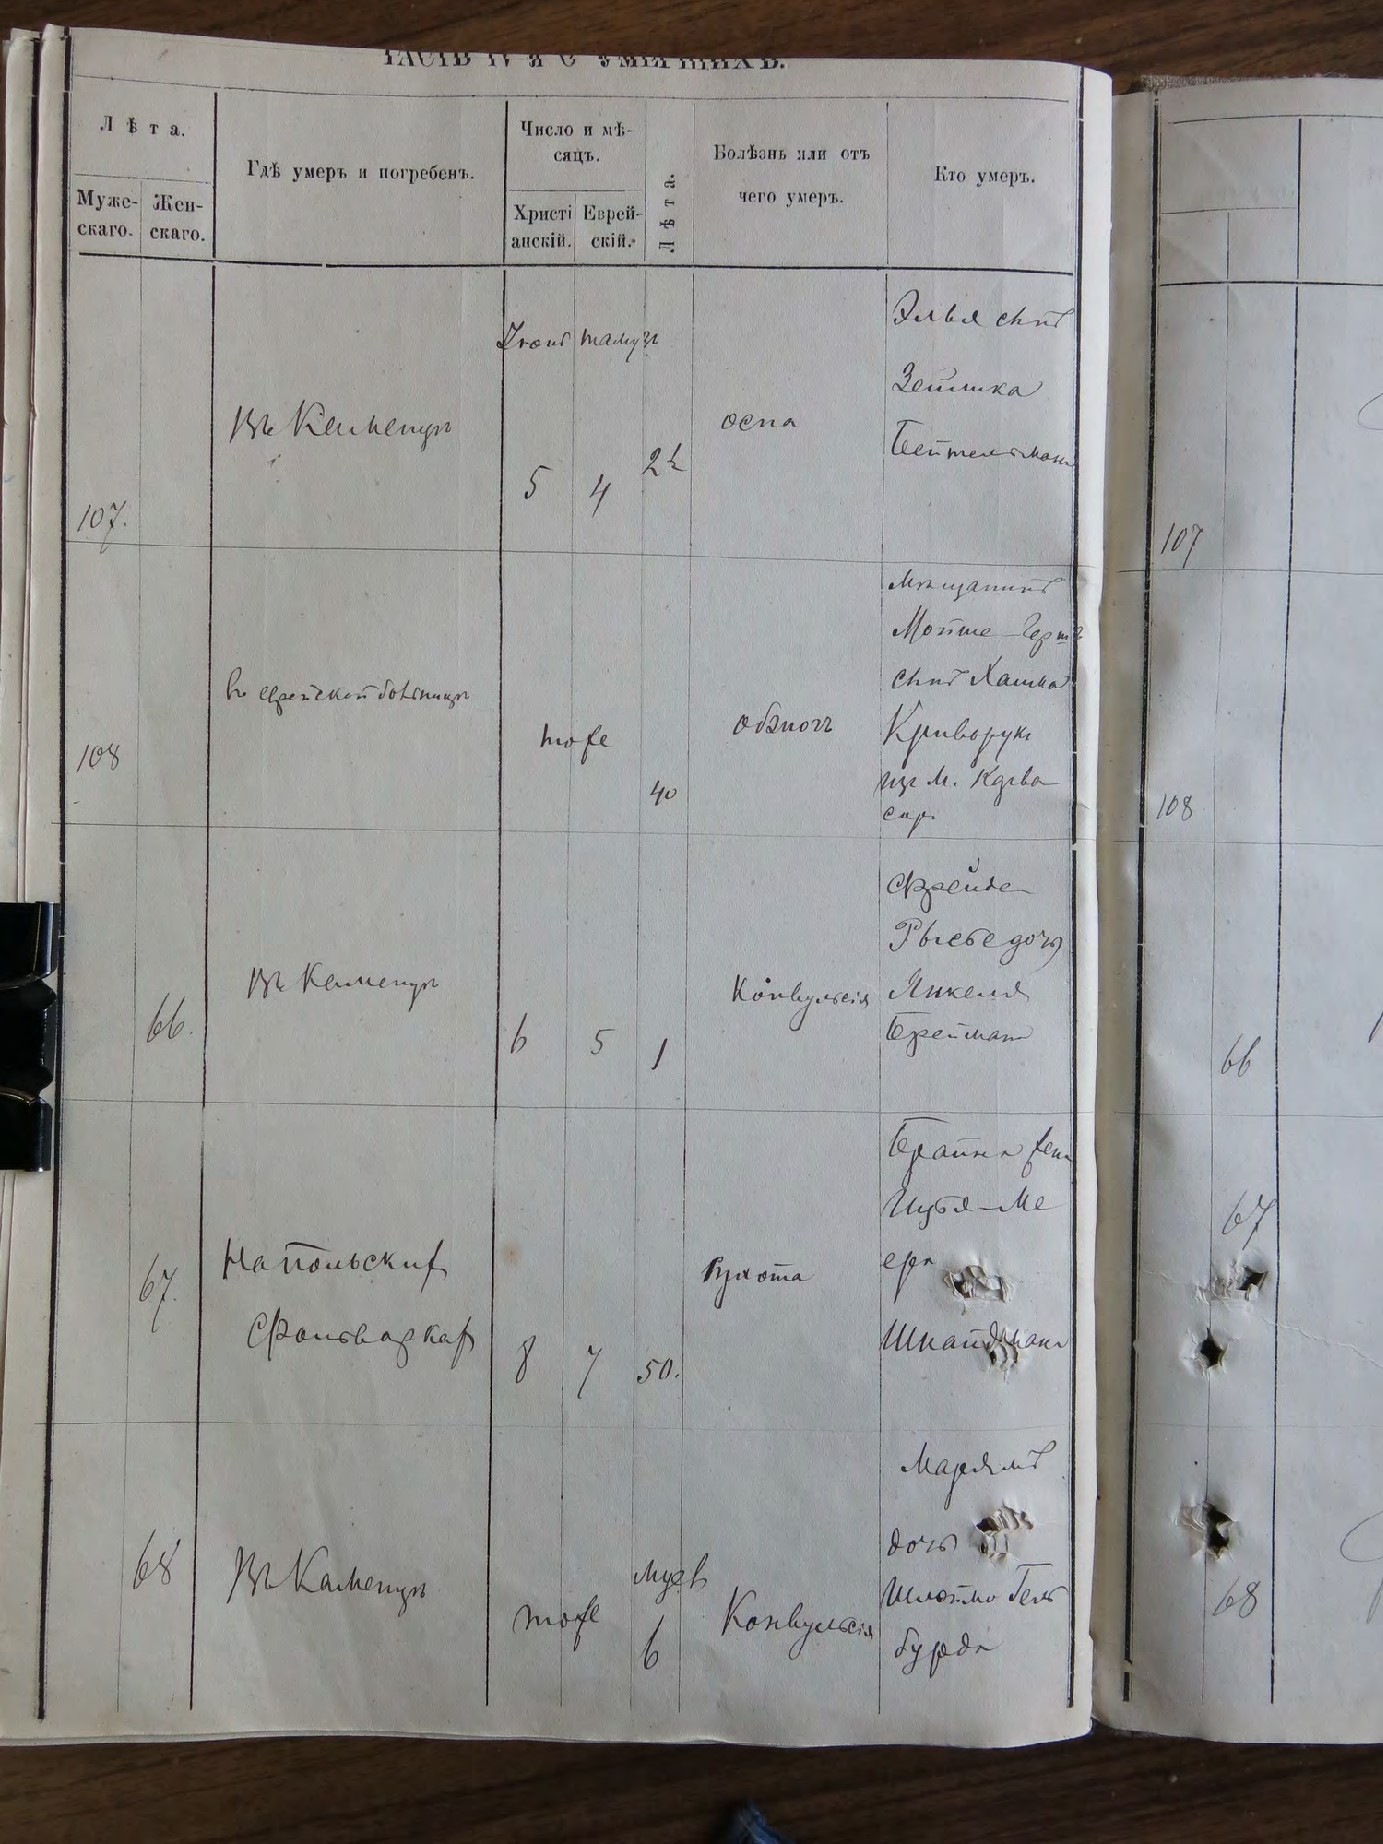 ЧАСТЬ IV Я О УМЕРШИХЪ.
Лѣта.
Муже-
скаго.
Жен-
скаго.
Гдѣ умеръ и погребенъ.
Число и мѣ-
сяцъ.
Христі
анскій.
Еврей-
скій.
Лѣта.
Болѣзнь или отъ
чего умеръ.
Кто умеръ.
107.
Въ Каменцѣ
Іюнь тамуз
5
4
2½
оспа
Эльвя сынъ
Зейлика
Бейтельман
107
108
въ еврейской больницѣ
тоже
40
Мѣщанинъ
Мойше-Герш
сынъ Хаима
Криворук
из м.
108
66.
Въ Каменцѣ
6
5
1
Конвульсія
Фрейде
дочь
Янкеля
Брейман
66
67.
На польских
Фольварках
8
7
50.
Сухота
Брайна жена
Шубя-Ме
ера
67
68
Въ Каменцѣ
тоже
муев
6
Конвульсія
Марямъ
дочь
Шлоймо Гель
бурда
68